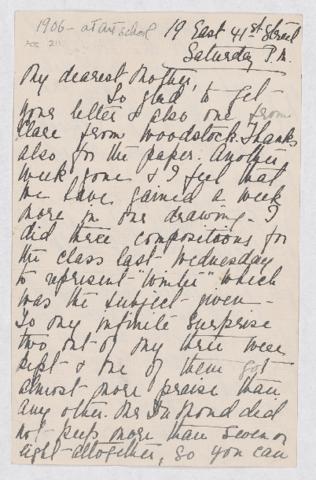 1906 - at Art school
19 East 41st Street
Saturday P.M.
My dearest Mother,
So glad to get
your letter & also one from
Clare from Woodstock. Thanks
also for the paper. Another
week gone & I feel that
we have gained a week
more in our drawing. I
did three compositions for
the class last Wednesday
to represent "Winter" which
was the subject given -
To my infinite surprise
two out of my three were
kept & one of them got
almost more praise than
any other. Mr DuMond did
not keep more than seven or
eight altogether, so you can